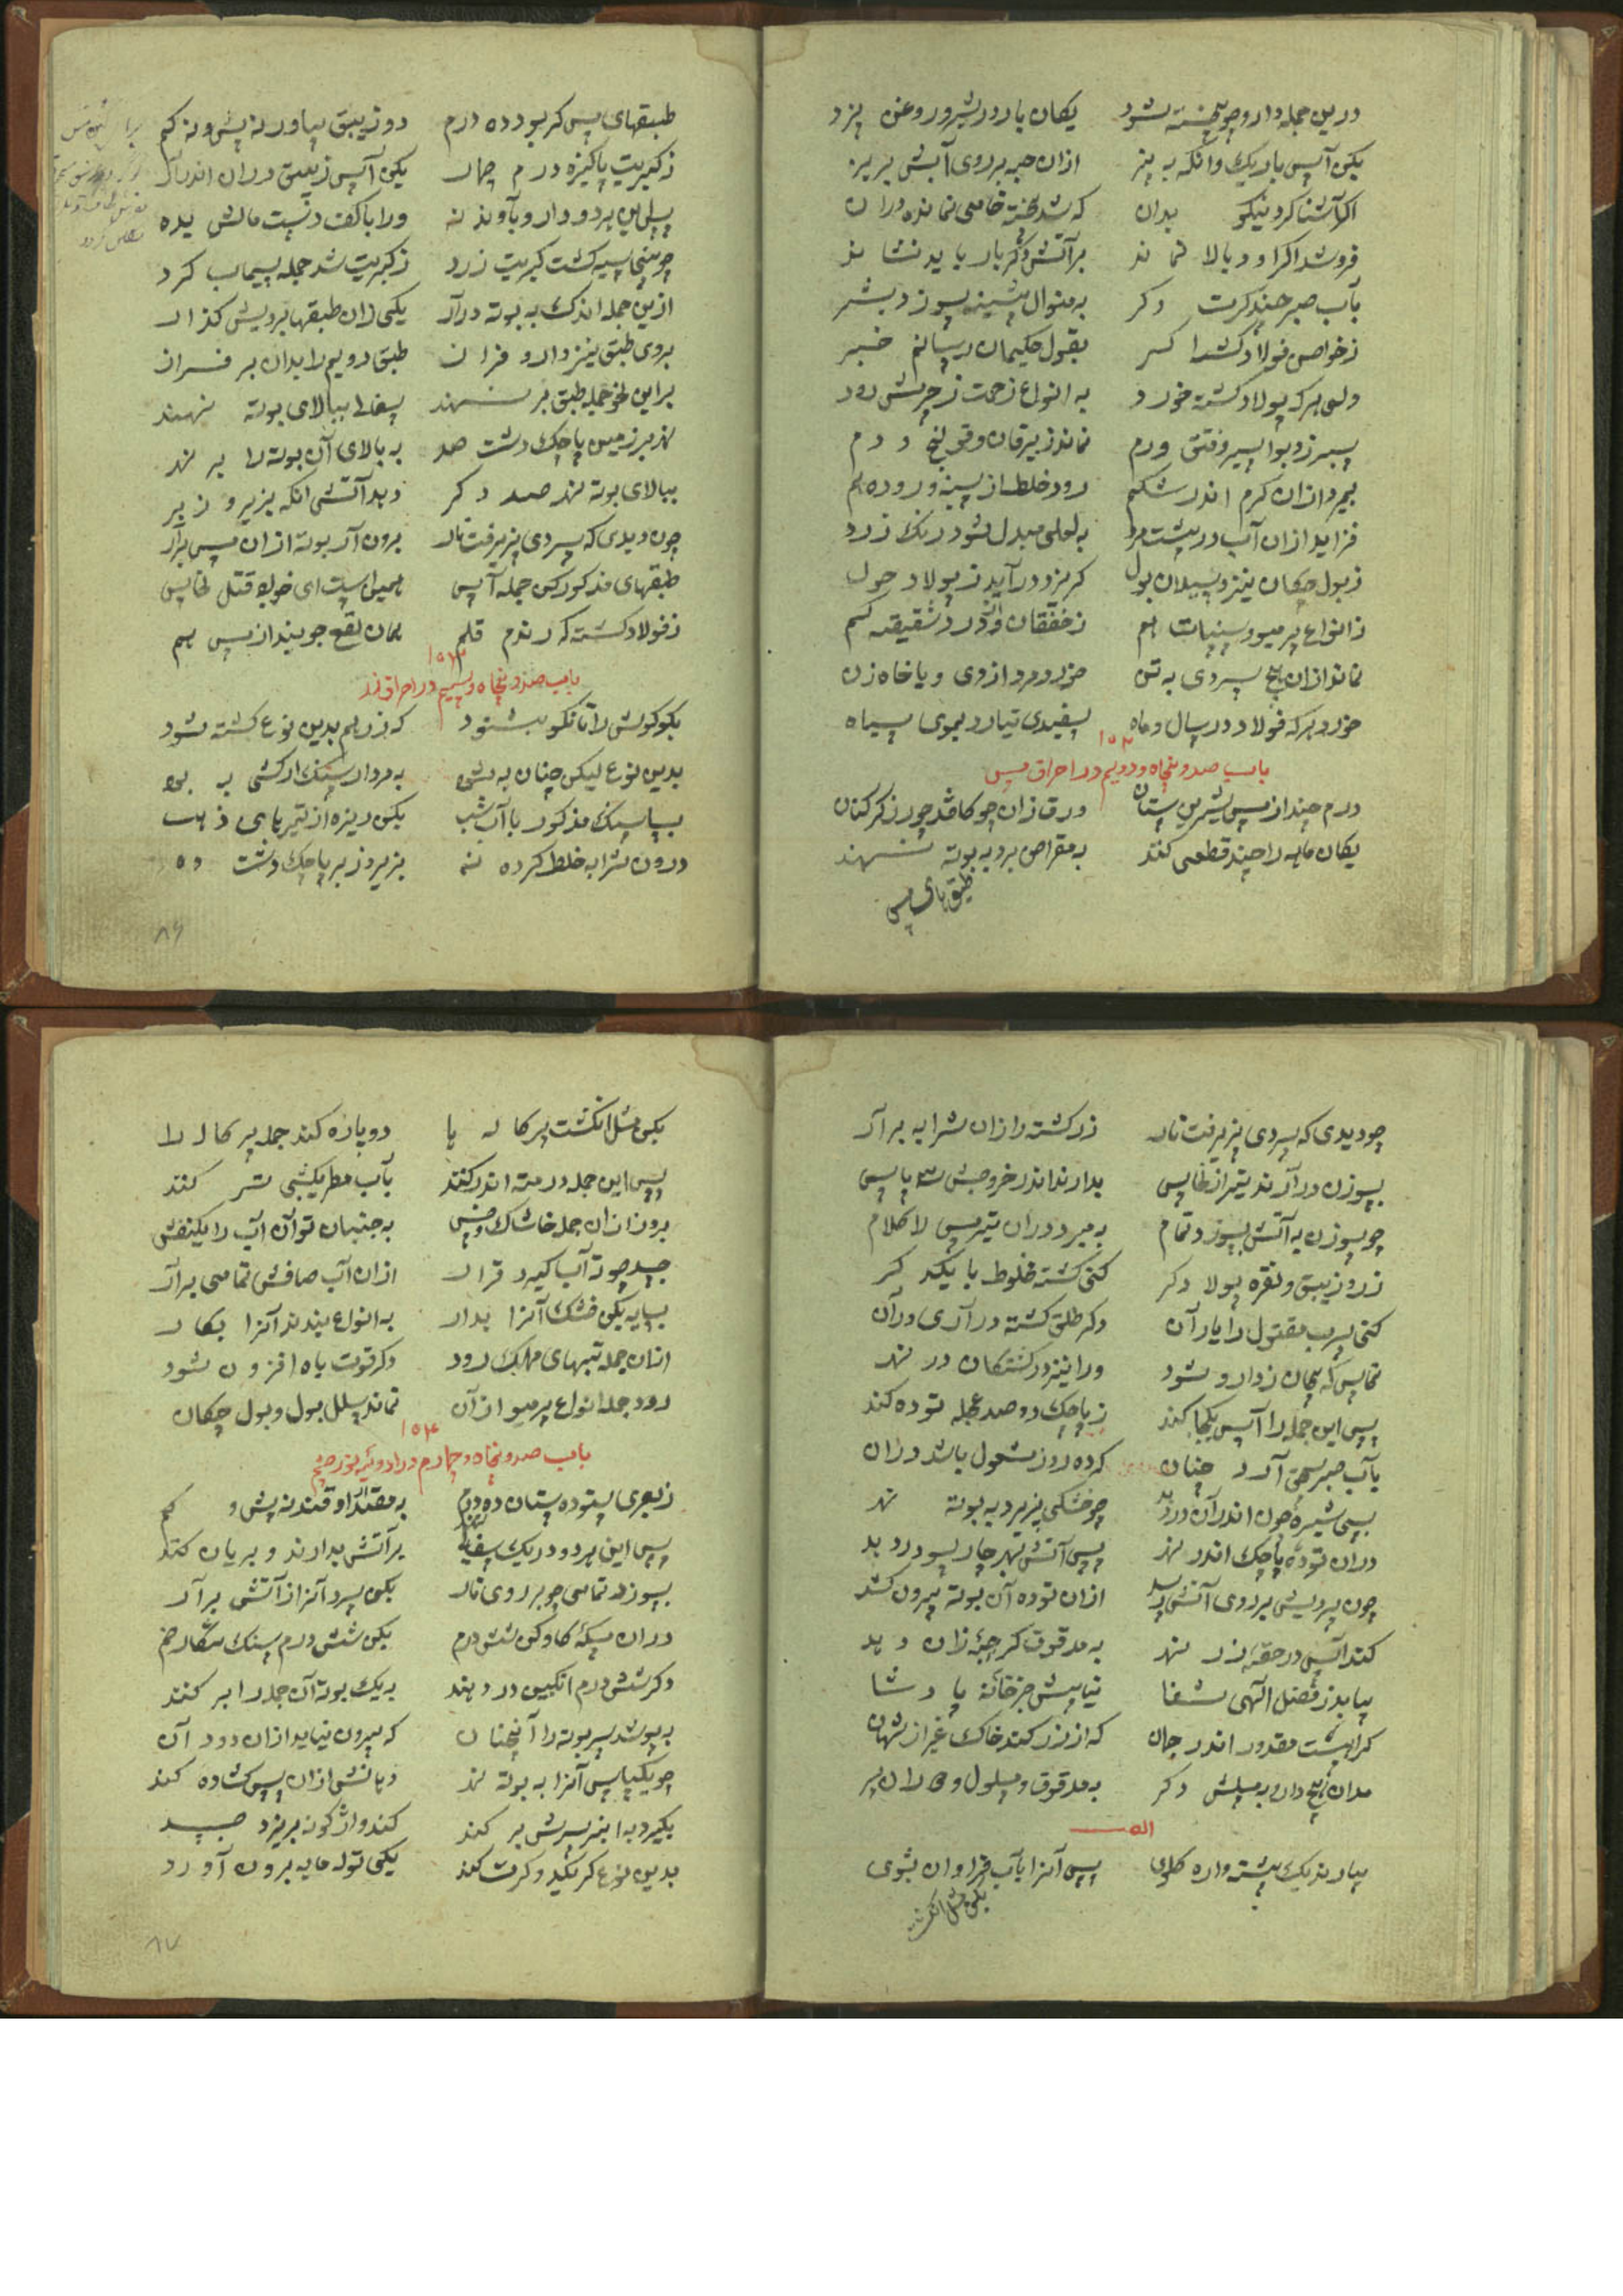 درین جمله دارو چو پخته شود یکان بار در شیر و روغن پزد
بکن آپس باریک وانگه به بیز ازان حبه بر روی آبش بریز
اگر آشنا کرد نیکو بدان که شد پخته خامی نمانده دران
فروشد اگر او و بالا نماند بر آتش دگر بار باید نشاند
بآب صبر چند کرت دگر به منوال پیشینه سوزد بشر
ز خواص فولاد کشته دگر بقول حکیمان رسانم خبر
ولی هرکه پولاد کشته خورد به انواع زحمت ز جرمش رود
سپرز و بواسیر و فتق ورم نماند ز یرقان و قولنج و دم
بمیرد ازان کرم اندر شکم رود خلط از سینه و روده هم
فزاید ازان آب در پشت مرد به لعلی مبدل شود رنگ زرد
ز بول چکان نیز و سیلان بول گریزد در آید ز پولاد حول
ز انواع پرمیو و سنپات هم ز خفقان و از درد شقیقه کم
نماند ازان هیچ سردی به تن خورد مرد ازوی و یا خاه زن
خورد هرکه فولاد در سال و ماه سفیدی نیارد بموی سیاه
۱۵۲
باب صد و پنجاه و دویم در احراق مس
درم چند از مس بشمرین ستان ورق زان چو کاغذ چو زرگر کنان
یکان ماهه را چند قطعی کنند به مقراض برد به بوته نهند
طبق های مس
طبقهای مس گر بود ده درم دو زیبق بیاور نه بیش و نه کم
ز کبریت پاکیزه درم چهار بکن آپس زیبق دران اندر آر
پس این هردو دارو بآوند نه ورا با کف دست مالش بده
چو بینی سیه گشت کبریت زرد ز کبریت شد جمله سیماب گرد
ازین جمله اندک به بوته درآر یکی زان طبقها برویش گذار
بروی طبق نیز دارو فزان طبق دویم را بدان بر فراز
براین نحو جمله طبق بر نهند سفالی ببالای بوته نهند
نهد بر زمین پاچک دشت صد به بالای آن بوته را بر نهد
ببالای بوته نهد صد دگر دهد آتشی انکه بزیر و زبر
چون دیدی که سردی پذیرفت نار برون آر بوته ازان مس برآر
طبقهای مذکور کن جمله آپس همین است ای خواجه قتل نحاپس
ز فولاد کشته که راندم قلم همان نفع جویند از مس هم
۱۵۳
باب صد و پنجاه و سیم در احراق زر
بکو کوش را تا نکو بشنود که زر هم بدین نوع کشته شود
بدین نوع لیکن چنان به شی به مردار سنگ ار کشی به بهی
بساسنگ مذکور با آب شب بکن ریزه از تیر باهی ذهب
درون شرابه خلط کرده نه بزیر و زبر پاچک دشت ده
۸۶
چو دیدی که سردی پذیرفت نار زر کشته را زان شرابه برآر
بسوزن درآرند تیر از نحاپس بدارند اندر خروجش سه پاپس
چو سوزن به آتش بسوزد تمام به میرد دران تیر مس لا کلام
زر و زیبق و نقره پولاد دگر کنی کشته مخلوط با یکدگر
کنی سرب مقتول را یار آن وگر طلق کشته در آری درآن
نحاپس که بیجان ز دارو شود ورا نیز در کشتگان در نهد
پس این جمله را آپس یکجا کند ز پاچک دو صد عجله توده کند
بآب صبر سحق آرد چنان که ده روز مشغول باشد دران
پسی شیره چون اندر آن درد دهد چو خشکی پذیرد به بوته نهد
دران توده پاچک اندر نهد پس آتش بهر چار سو در دهد
چون سردیش بر روی آتش رسید ازان توده آن بوته بیرون کشد
کند آپس در حقه زر نهد به مدقوق گر حبه زان دهد
بیابد ز فضل الهی شفا نیابیش جز خانه پادشا
کراهست مقدور اندر جهان که از زر کند خاک غیر از شهان
بدان نهج دارو به مپلش دگر به مدقوق و مسلول
اله
بیارند یک پشتواره کلوی پس آنرا بآب فراوان بشوی
بکن مثل انگشت
بکن مثل انگشت پرکاله ها دوباره کند جمله پرکاله را
پس این جمله در مته اندر کنند بآب مطر یکشبی تر کنند
برون زان جمله خاشاک و خس به جنبان تو آن آب را یکنفس
جسد چون ته آب گیرد قرار ازان آب صافش تمامی برآر
بسایه بکن خشک آنرا بدار به انواع بندند آنرا بکار
ازان جمله تبهای مهلک رود وگر قوت باه افزون شود
رود جمله انواع پرمیو ازآن نماند سلسل بول و بول چکان
۱۵۴
باب صد و پنجاه و چهارم در ادویه نورچشم
ز بصری ستوده ستان ده درم به مقدار او قند نه بیش و کم
پس این هردو در یک سفالی نهند بر آتش بدارند و بریان کنند
بسوزند تمامی چو بر روی نار بکن سرد آنرا از آتش برآر
دران مسکه گاو کن شش درم بکن شش درم سنگ شنگار ضم
دگر شش درم انگبین در دهند به یک بوته آن جمله را بر کنند
بپوشد سر بوته را آنچنان که بیرون نیاید ازان دود آن
چو یکپاس آنرا به بوته نهد دهانش ازان پس کشاده کند
بگیرد به انبر سرش بر کند کند واژگونه بریزد جسد
بدین نوع گر یکبد و کرت کند یکی توله مایه برون آورد
۸۷